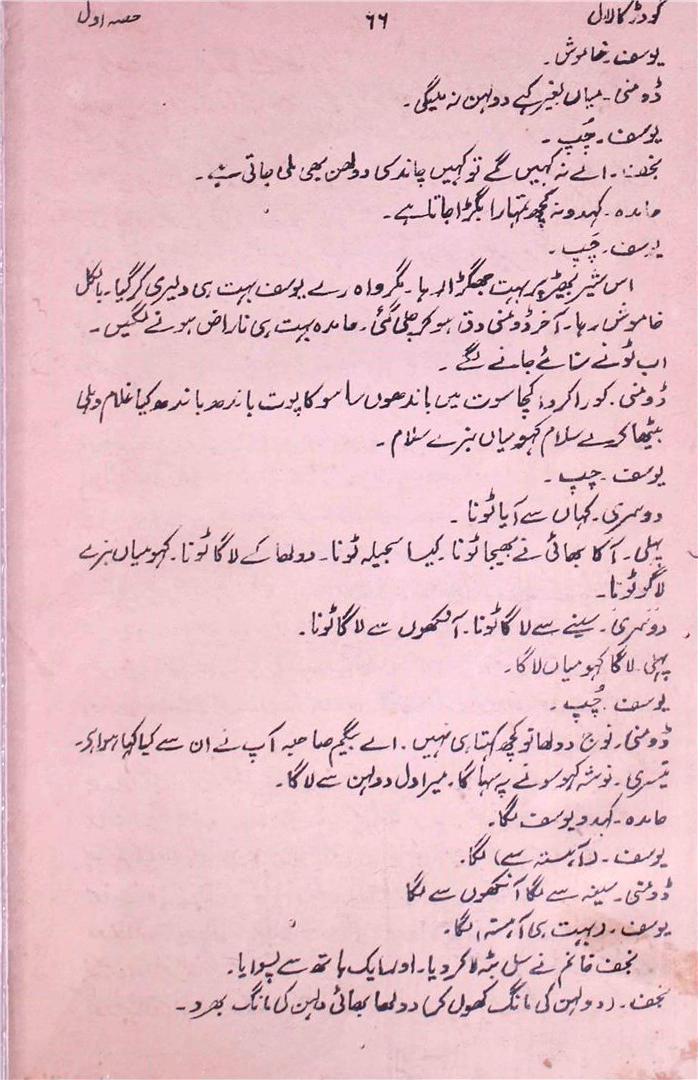 گودڑ کا لال ۶۶ حصہ اول
یوسف۔ خاموش۔
ڈومنی۔ میاں بغیر کہے دولہن نہ ملیگی۔
یوسف۔ چُپ۔
نجف۔ اے نہ کہیں گے تو کہیں چاند سی دولھن بھی ملی جاتی ہے۔
حامدہ۔ کہدو نہ کچھ تمہارا بگڑا جاتا ہے۔
یوسف۔ چَپ۔
اس شیر بھیڑ پر بہت جھگڑا رہا۔ مگر واہ رے یوسف بہت ہی دلیری کر گیا۔ بالکل
خاموش رہا۔ آخر ڈومنی دق ہو کر چلی گئی۔ حامدہ بہت ہی ناراض ہونے لگیں۔
اب ٹونے سنائے جانے لگے۔
ڈومنی۔ کورا کروا کچا سوت میں باندھوں ساسو کا پوت باندھ باندھ کیا غلام ڈیلی
بیٹھا کرے سلام کہو میاں بنرے سلام۔
یوسف۔ چپ۔
دوسری۔ کہاں سے آیا ٹونا۔
پہلی۔ آکا بھائی نے بھیجا ٹونا۔ کیسا سجیلہ ٹونا۔ دولھا کے لاگا ٹونا۔ کہو میاں بنرے
لاگو ٹونا۔
دوسری۔ سینے سے لاگا ٹونا۔ آنکھوں سے لاگا ٹونا۔
پہلی۔ لاگا کہو میاں لاگا۔
یوسف۔ چُپ۔
ڈومنی۔ نوج دولھا تو کچھ کہتا ہی نہیں۔ اے بیگم صاحبہ آپ نے ان سے کیا کہا ہوا ہے۔
تیسری۔ نوشہ کہو سونے پر سہاگا۔ میرا دل دولہن سے لاگا۔
حامدہ۔ کہدو یوسف لگا۔
یوسف۔ (آہستہ سے) لگا۔
ڈومنی۔ سینہ سے لگا آنکھوں سے لگا
یوسف۔ (بہت ہی آہستہ) لگا۔
نجف خانم نے سل بٹہ لا کر دیا۔ اور ایک ہاتھ سے پسوایا۔
نجف۔ (دولہن کی مانگ کھول کر) دولھا بھائی دلہن کی مانگ بھرو۔